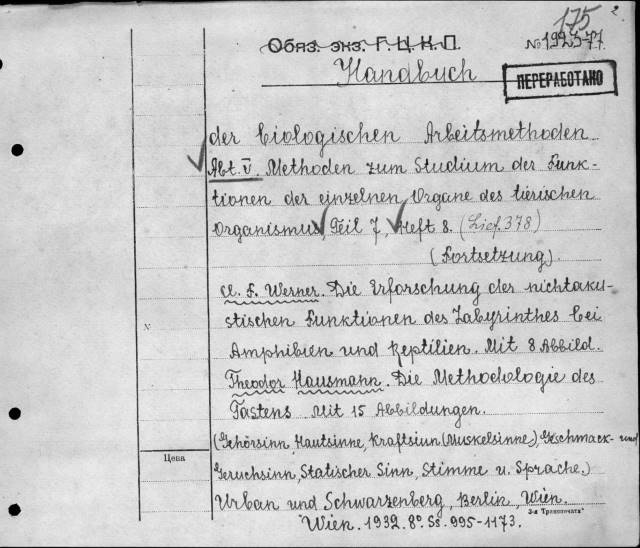 175
Обяз. экз. Г. Ц. К. П.
Handbuch
ПЕРЕРАБОТАНО
der biologischen Arbeitsmethoden
Abt. V. Methoden zum Studium der Funk-
tionen der einzelnen Organe des tierischen
Organismus, Teil 7, Heft 8. (Lief. 378)
(Fortsetzung).
Cl. F. Werner. Die Erforschung der nichtaku-
stischen Funktionen des Labyrinthes bei
Amphibien und Reptilien. Mit 8 Abbild.
Theodor Hausmann. Die Methodologie des
Tastens Mit 15 Abbildungen.
(Gehörsinn, Hautsinne, Kraftsinn (Muskelsinne), Geschmack- und
Цена
Geruchsinn, Statischer Sinn, Stimme u. Sprache.)
Urban und Schwarzenberg, Berlin, Wien.
3-я Транспечать
Wien. 1932. 8° Ss. 995-1173.